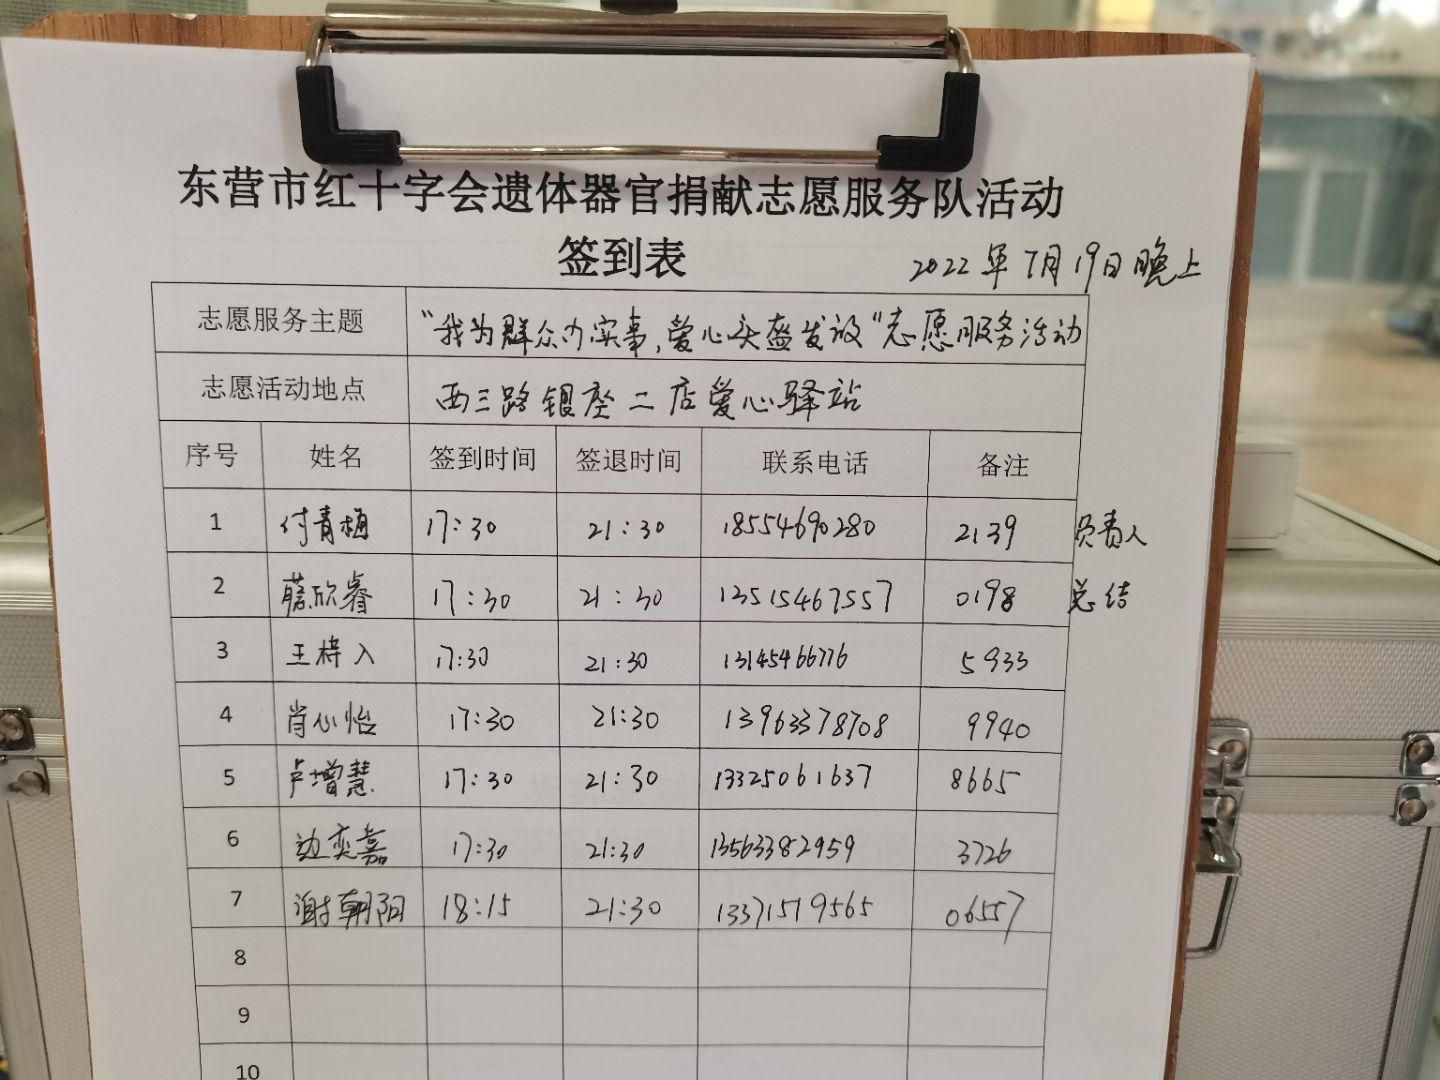 东营市红十字会遗体器官捐献志愿服务队活动
签到表
2022年7月19日晚上
志愿服务主题 “我为群众办实事,爱心头盔发放”志愿服务活动
志愿活动地点 西三路银座二店爱心驿站
序号 姓名 签到时间 签退时间 联系电话 备注
1 付青梅 17:30 21:30 18554690280 2139 负责人
2 蔡欣睿 17:30 21:30 13515467557 0198 总结
3 王梓入 17:30 21:30 13145466776 5933
4 肖心怡 17:30 21:30 13963378708 9940
5 卢增慧 17:30 21:30 13325061637 8665
6 边奕嘉 17:30 21:30 13563382959 3726
7 谢朝阳 18:15 21:30 13371519565 06557
8
9
10